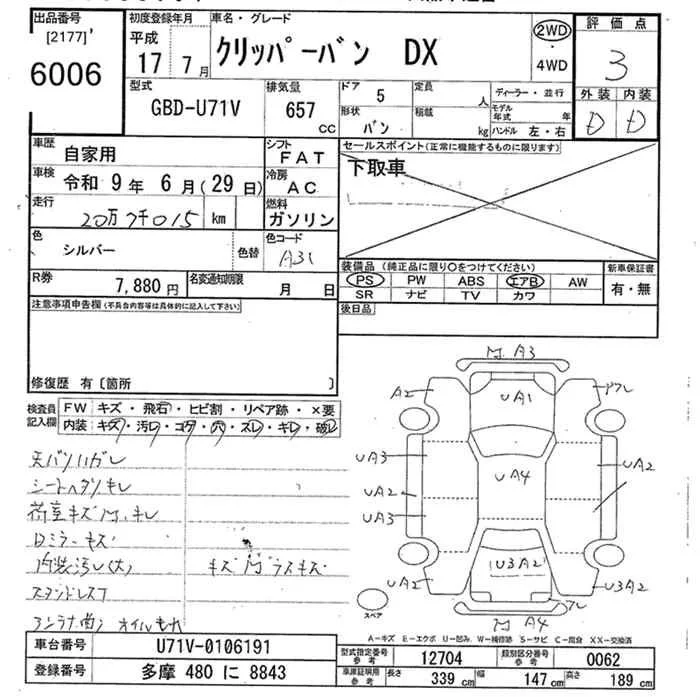 出品番号
[2177]'
6006
初度登録年月
平成
17 7月
車名・グレード
クリッパーバン DX
2WD
・
4WD
評価点
3
外装 内装
D D
型式
GBD-U71V
排気量
657 cc
ドア 5
形状 バン
定員 人
積載 kg
ディーラー・並行
モデル年式 年
ハンドル 左・右
車歴
自家用
シフト
FAT
車検 令和 9年 6月(29日)
冷房
AC
走行 20万7千015 km
燃料
ガソリン
色 シルバー 色替
色コード
A31
セールスポイント(正常に機能するものに限ります)
下取車
R券 7,880円
名変通知期限
月 日
装備品(純正品に限り○をつけてください)
PS PW ABS エアB AW
SR ナビ TV カワ
新車保証書
有・無
後日品
注意事項申告欄(不具合内容等は具体的に記入して下さい)
修復歴 有〔箇所 〕
検査員
記入欄
FW キズ・飛石・ヒビ割・リペア跡・×要
内装:キズ・汚レ・コゲ・穴・スレ・キレ・破レ
天バリハガレ
シートヘタリキレ
荷室キズ凹、キレ
Rミラーキズ
内装汚レ(大) キズ凹ラスキズ
スタンドレス
アンテナ曲り オイルもれ
凹 A3
A2
UA1
UA3
UA2
UA2
UA4
UA3
UA2
U3A2
U3A2
凹 A4
スペア
A-キズ E-エクボ U-凹み W-補修跡 S-サビ C-腐食 XX-交換済
車台番号 U71V-0106191
登録番号 多摩 480 に 8843
型式指定番号
参考
12704
類別区分番号
参考
0062
車庫証明用
参考
長さ 339 cm
幅 147 cm
高さ 189 cm